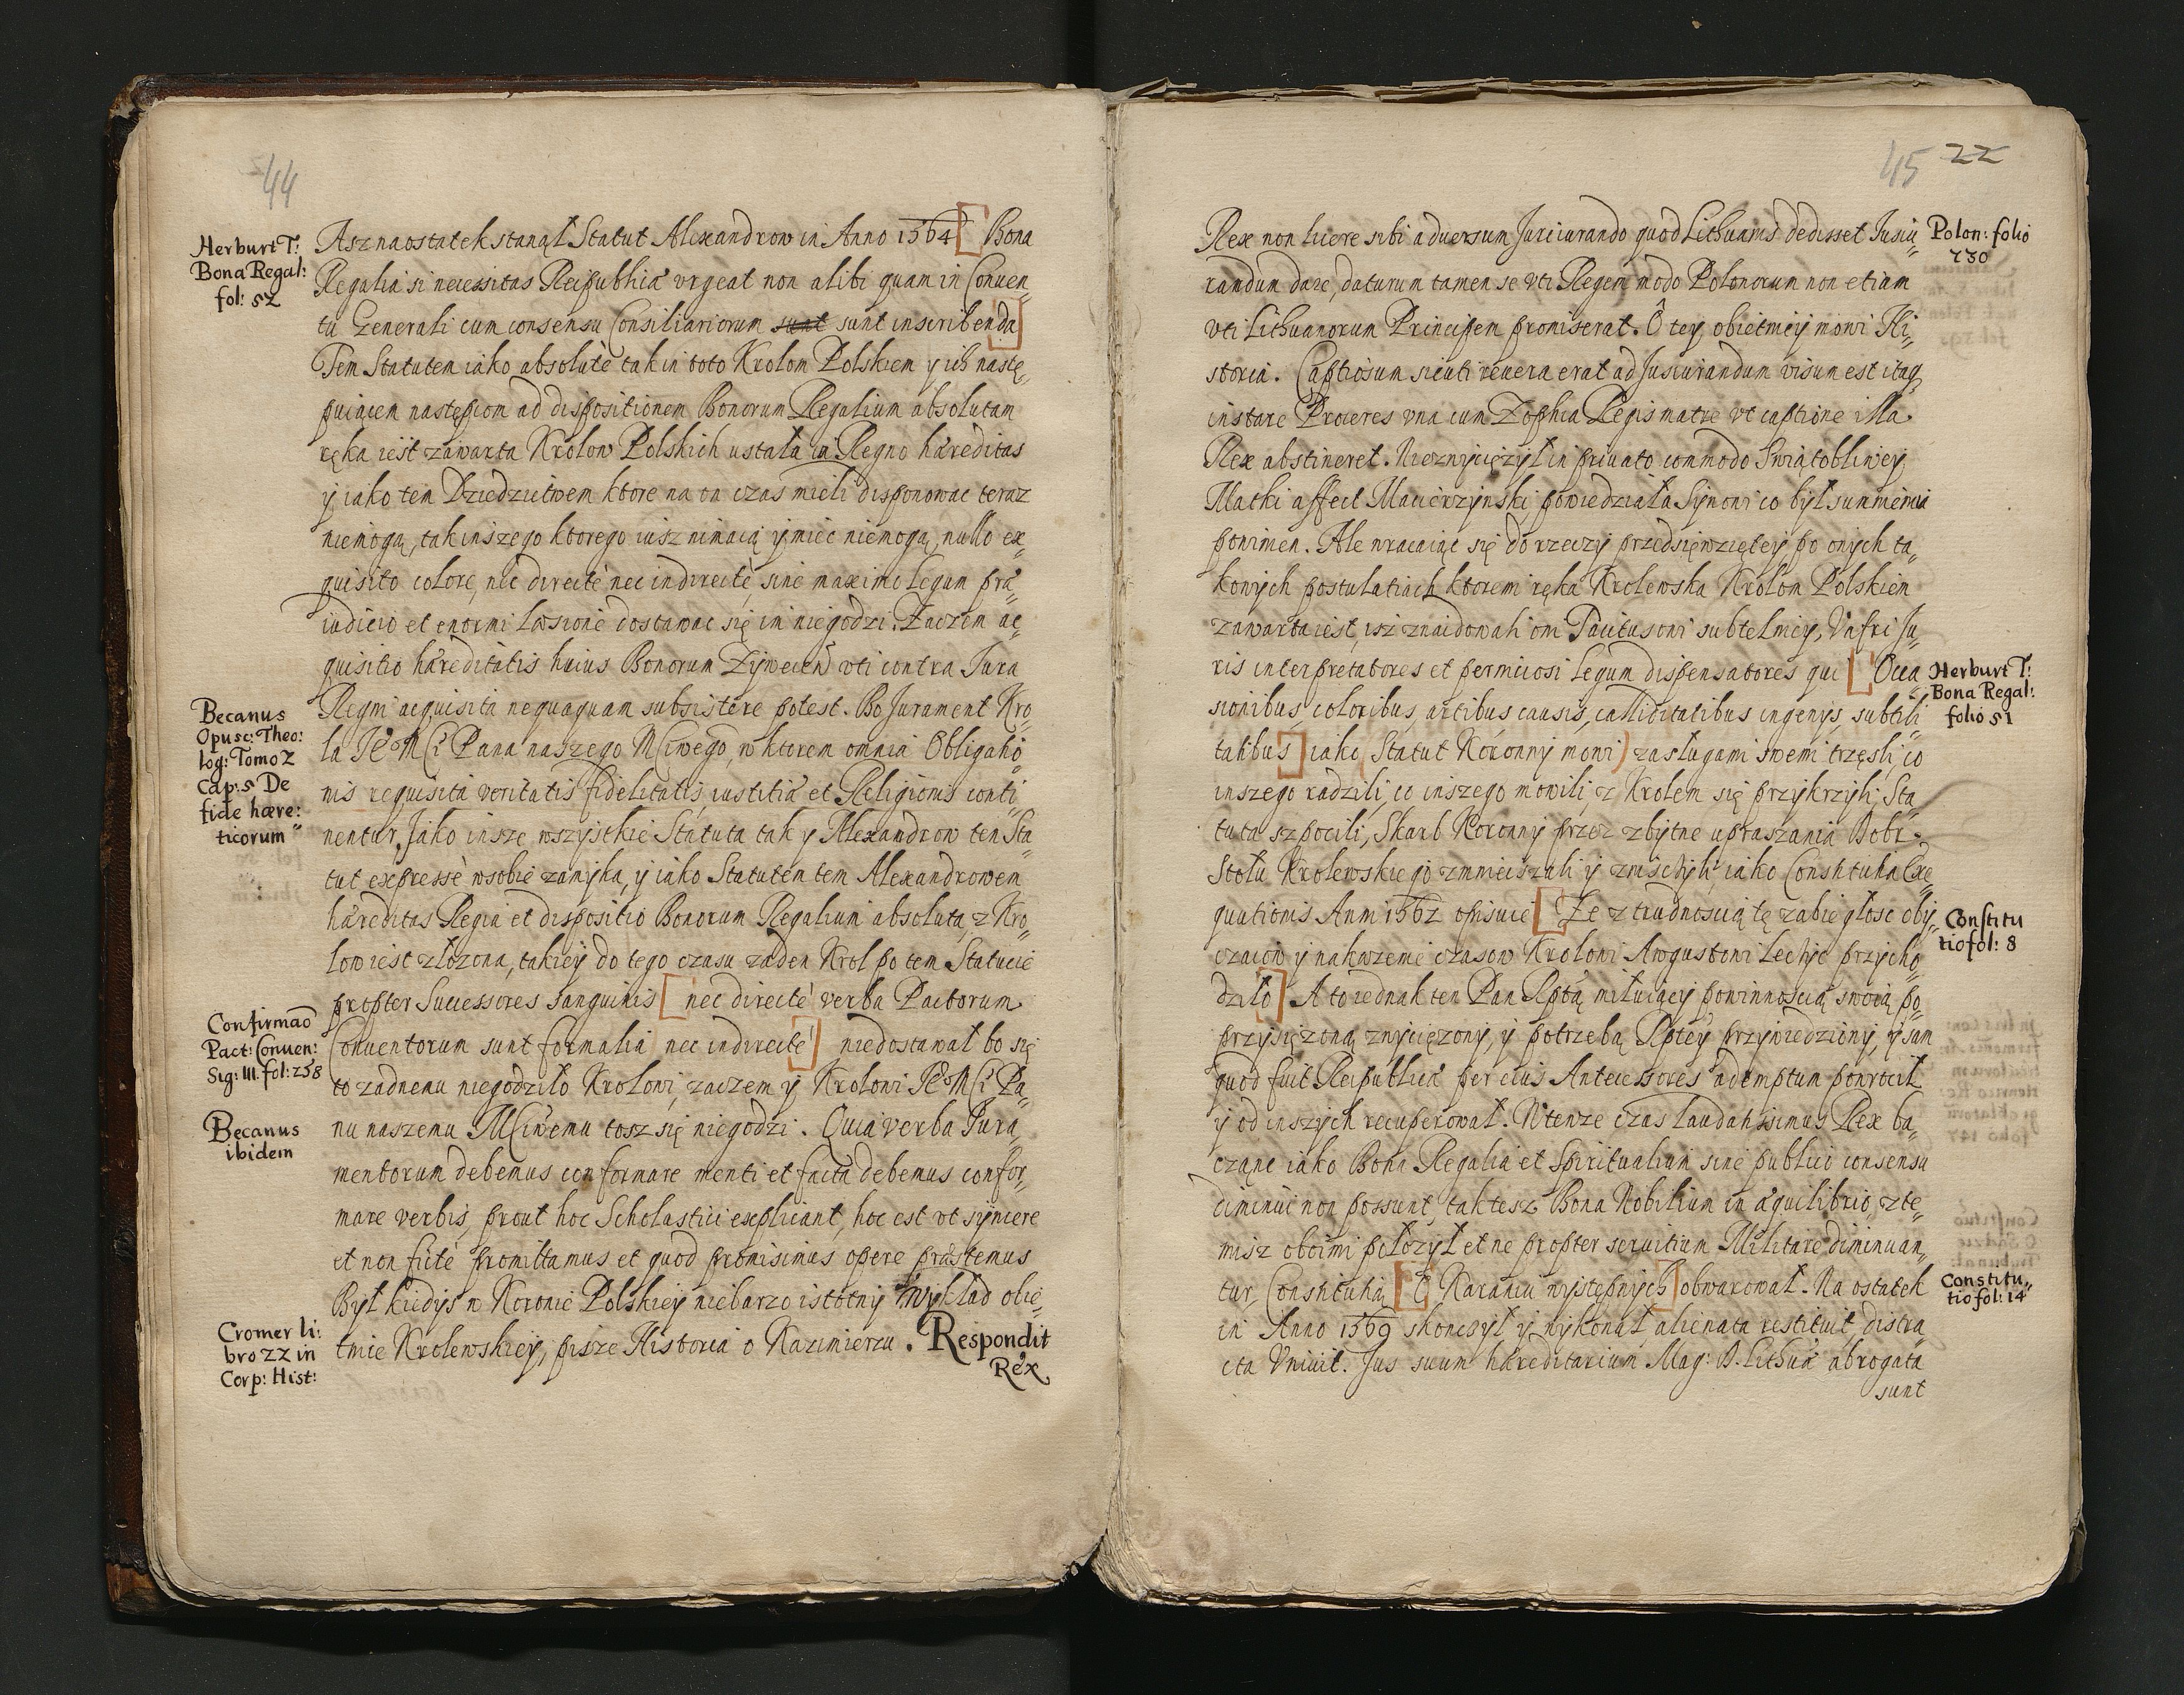 44
Herburt T:
Bona Regal:
fol: 52
Asz na ostatek stanął Statut Alexandrow in Anno 1564 [ Bona
Regalia si necessitas Reipublicæ vrgeat non alibi quam in Conuen„
tu Generali cum consensu Consiliariorum sunt sunt inscribenda ]
Tem Statutem iako absolutè tak in toto Krolom Polskiem y ich nastę„
puiącem następcom ad dispositionem Bonorum Regalium absolutam
ręka iest zawarta Krolow Polskich ustała in Regno hæreditas
y iako tem Dziedzictwem ktore na on czas mieli disponowac teraz
niemogą, tak inszego ktorego iusz nimaią y miec niemogą, nullo ex„
quisito colore, nec directè nec indirectè, sine maximo legum præ„
iudicio et enormi læsione dostawac się im niegodzi. Zaczem ac„
quisitio hæreditatis huius Bonorum Zÿwiecen̄ vti contra Jura
Regni acquisita nequaquam subsistere potest. Bo Jurament Kro„
la Je͞o M͞ci Pana naszego M͞ciwego, w ktorem omnia Obligatio„
nis requisita veritatis fidelitatis iustitiæ et Religionis conti„
nentur, Jako insze wszystkie Statuta tak y Alexandrow ten Sta„
tut expressè wsobie zamyka, y iako Statutem tem Alexandrowem
hæreditas Regia et dispositio Bonorum Regalium absoluta, z Kro„
low iest złozona, takiey do tego czasu zaden Krol po tem Statucie
propter Successores sanguinis [ nec directè verba Pactorum
Conuentorum sunt formalia nec indirectè ] niedostawał bo się
to zadnemu niegodziło Krolowi, zaczem y Krolowi Je͞o M͞ci Pa„
nu naszemu M͞ciwemu tosz się niegodzi. Quia verba Jura„
mentorum debemus conformare menti et facta debemus confor„
mare verbis, prout hoc Scholastici explicant, hoc est vt syncere
et non fictè promittamus et quod promisimus opere præstemus
Był kiedys w Koronie Polskiey niebarzo istotny wykład obie„
tnice Krolewskiey, pisze Historia o Kazimierzu. Respondit
Rex
Becanus
Opusc: Theo:
log: Tomo 2
Cap: 5 De
fide hære:
ticorum
Confirmaõ
Pact: Conuen:
Sig: III. fol: 258
Becanus
ibidem
Cromer li:
bro 22 in
Corp: Hist:
45 22
Rex non licere sibi aduersum Jureiurando quod Lithuanis dedisset Jusiu„
randum dare, daturum tamen se vti Regem modo Polonorum non etiam
vti Lithuanorum Principem promiserat. O tey obietnicy mowi Hi„
storia. Captiosum sicuti reuera erat ad Jusiurandum visum est itaq
instare Proceres vna cum Zophia Regis matre vt captione illa
Rex abstineret. Niezwyciężył in priuato commodo Swiątobliwey
Matki affect Macierzynski powiedziała Synowi co był summen
ponimen. Ale wracaiąc się do rzeczy przedsięwziętey po onych ta„
kowych postulatiach ktoremi ręka Krolewska Krolom Polskiem
zawarta iest, isz znaidowali om Tacitusowi subtelnicy, Vafri Ju„
ris interpretatores et perniciosi Legum dispensatores qui [ Occa„
sionibus, coloribus, artibus causis, calliditatibus ingenys, subtili„
tatibus ] iako (Statut Koronny mowi) zasługami swemi trzęsli, co
inszego radzili, co inszego mowili, z Krolem się przykrzyli, Sta„
tuta szpocili, Skarb Koronny przez zbytne upraszania Dobr
Stołu Krolewskiego zmnieiszali y zniszczyli, iako Constitutia Exe„
qutionis Anni 1562 opisuie [ Ze z trudnoscią tę zabiegłosc oby„
czaiow y nakazenie czasow Krolowi Awgustowi leczyc przycho„
dziło ] A to iednak ten Pan Rptą miłuiący powinnoscią swoią po„
przysięzoną zwycięzony, y potrzebą Rptey przywiedziony, y sam
quod fuit Reipublicæ per eius Antecessores ademptum powrocił
y od inszych recuperował. Wtenze czas laudatissimus Rex ba„
cząnc iako Bona Regalia et Spiritualium sine publico consensu
diminui non possunt, taktesz Bona Nobilium in æquilibrio z te„
misz oboimi położył et ne propter seruitium Militare diminuan„
tur, Constitutią [ O Karaniu występnych ] obwarował. Na ostatek
in Anno 1569 skonczył y wykonał alienata restituit distra„
cta Vniuit. Jus suum hæreditarium Mag: D. Lithuæ abrogata
sunt
Polon: folio
230
Herburt T:
Bona Regal:
folio 51
Constitu
tio fol: 8
Constitu„
tio fol: 14